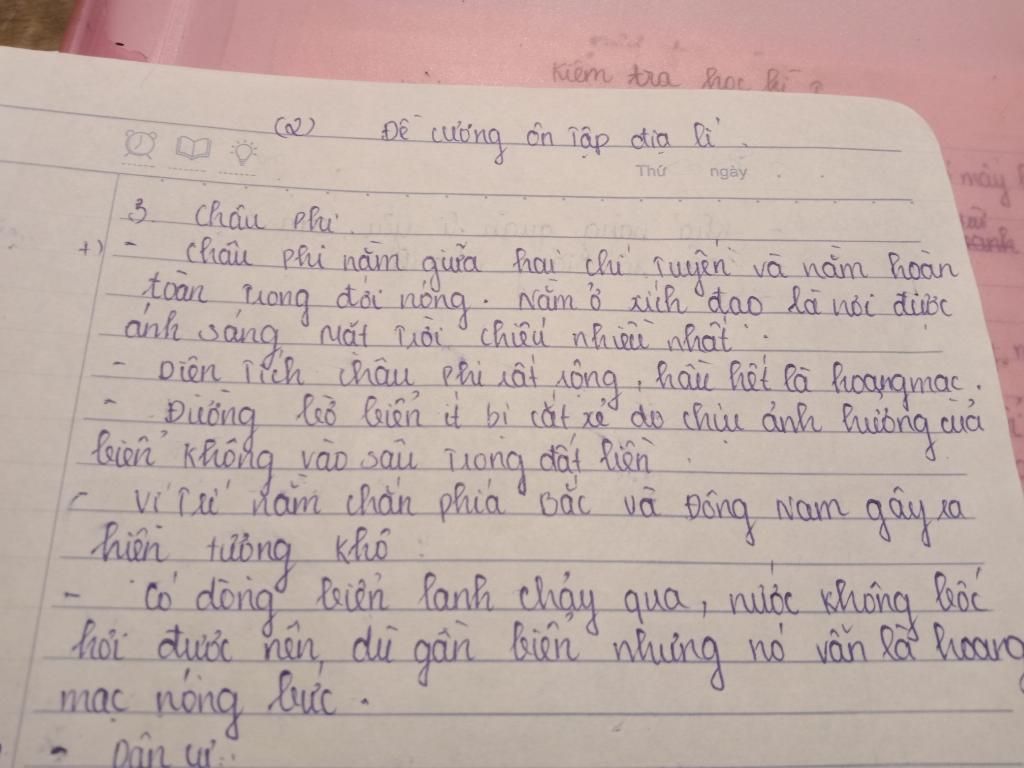 Kiểm tra học kì
(2) Đề cương ôn tập địa lí.
Thứ ngày
3 Châu Phi.
+) - Châu phi nằm giữa hai chí tuyến và nằm hoàn
toàn trong đới nóng. Nằm ở xích đạo là nơi được
ánh sáng Mặt Trời chiếu nhiều nhất.
- Diện tích châu phi rất rộng, hầu hết là hoang mạc.
- Đường bờ biển ít bị cắt xẻ do chịu ảnh hưởng của
biển không vào sâu trong đất liền.
- Vị trí nằm chắn phía Bắc và Đông Nam gây ra
hiện tượng khô.
- Có dòng biển lạnh chảy qua, nước không bốc
hơi được nên, dù gần biển nhưng nó vẫn là hoang
mạc nóng bức.
- Dân cư.